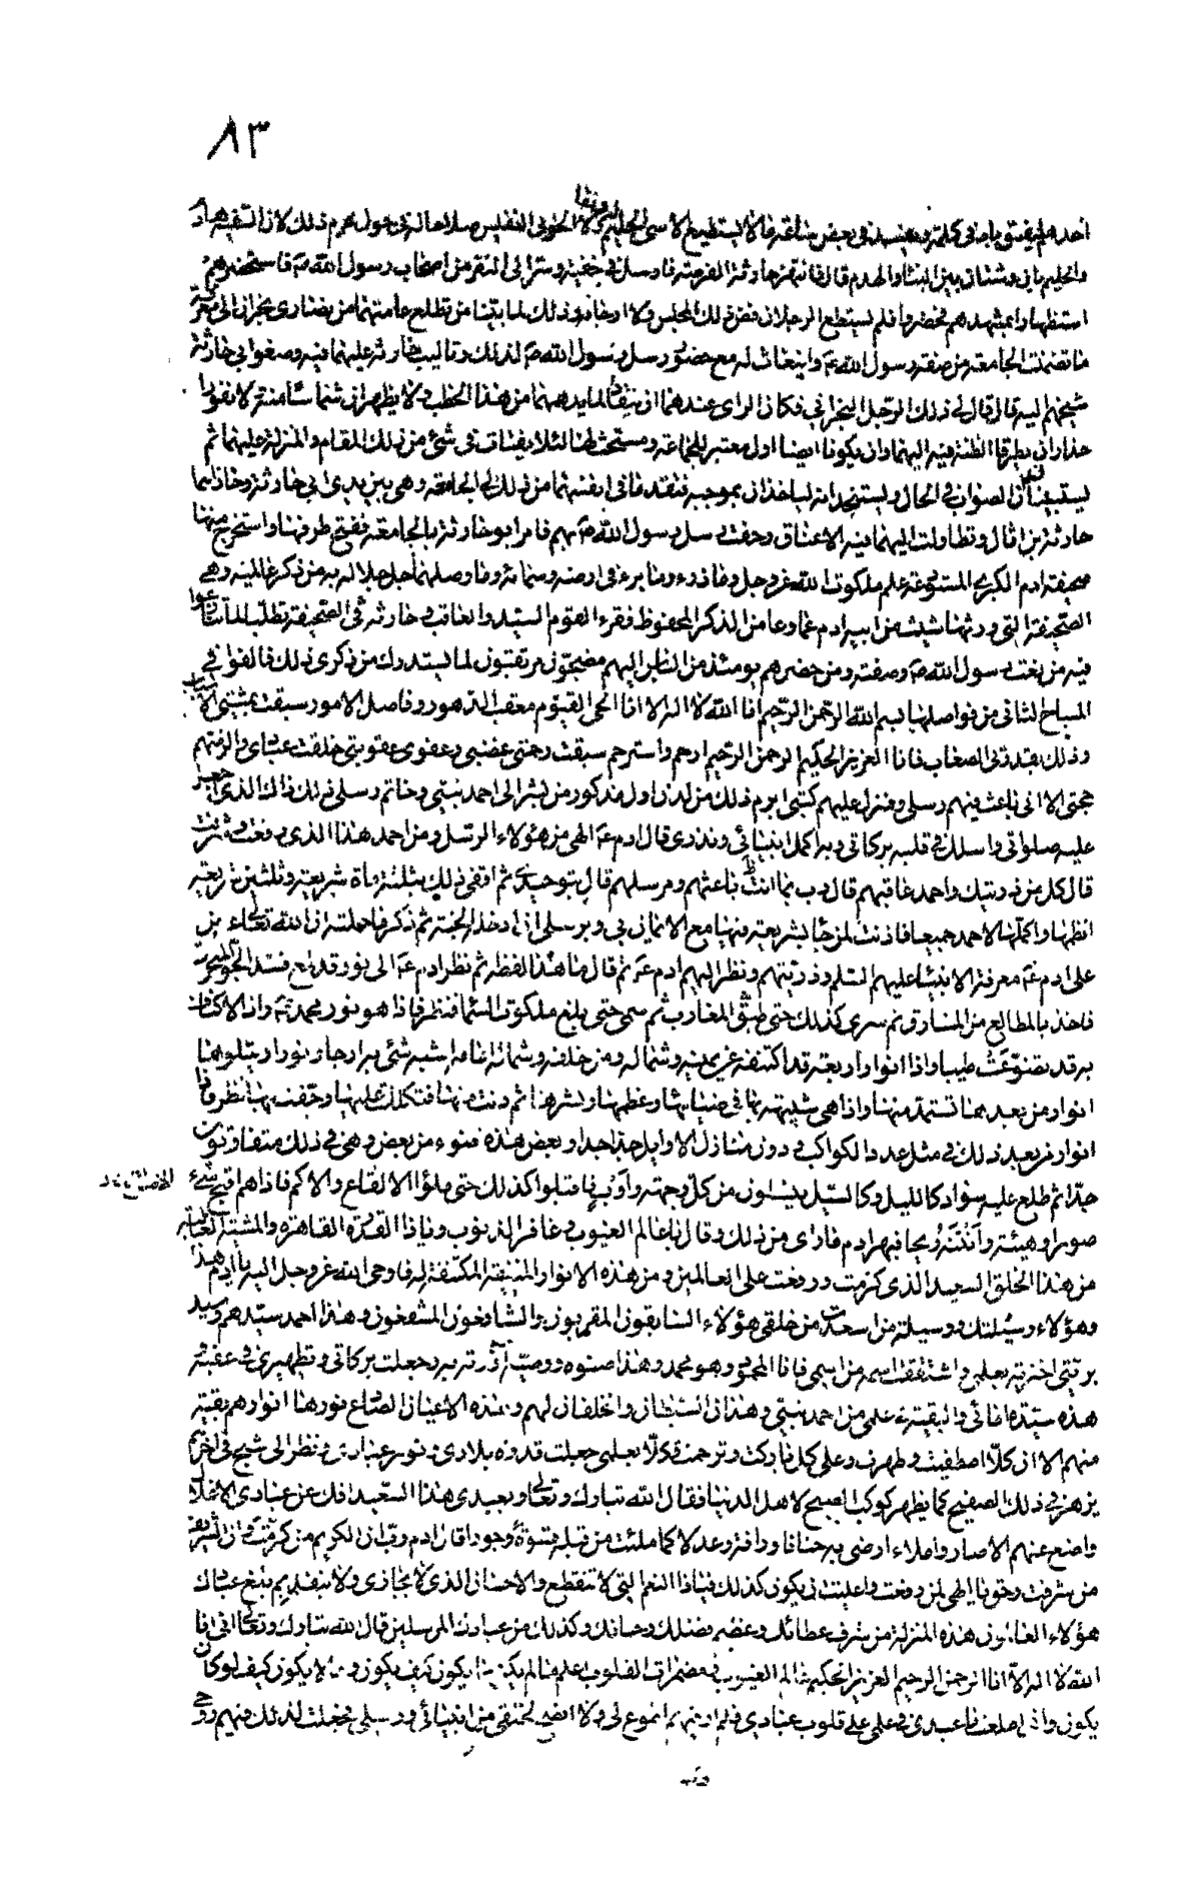 ٨٣
والحليم بانى وشتان بين البناء والهدم قال فانتهز حارثة الفرصة فارسل فى خفية وسر الى النفر من اصحاب رسول الله ص فاستحضرهم
استظهارا بمشهدهم فحضروا فلم يستطع الرجلان فض ذلك المجلس ولا ارجاءه وذلك لما بينا من تطلع عامتهما من نصارى نجران الى معرفة
ما تضمنت الجامعة من صفة رسول الله ص وانبعاث له مع حضور رسل رسول الله ص لذلك وتاليب حارثة عليهما فيه وصغو ابى حارثة
شيخهم اليه قال قال لى ذلك الرجل النجرانى فكان الراى عندهما ان ينقادا لما يدهمهما من هذا الخطب ولا يظهران شماسا منه ولا نفورا
حذار ان يطرقا الظنة فيه اليهما وان يكونا ايضا اول معتبر للجامعة ومستحث لها لئلا يفتات فى شئ من ذلك المقام والمنزلة عليهما ثم
ليستبينان الصواب فى الحال ويستنجدانه لياخذان بموجبه فتقدما فى انفسهما من ذلك الى الجامعة وهى بين يدى ابى حارثة وحاذاهما
حارثة بن اثال وتطاولت اليهما فيه الاعناق وحفت رسل رسول الله ص بهم فامر ابو حارثة بالجامعة ففتح طرفها واستخرج منها
صحيفة ادم الكبرى المستوعبة علم ملكوت الله عز وجل وما ذرء وما برء فى ارضه وسمائه وما وصلهما جل جلاله به من ذكر عالميه وهى
الصحيفة التى ورثها شيث من ابيه ادم عما دعا من الذكر المحفوظ فقرء القوم السيد والعاقب وحارثة فى الصحيفة تطلبا لما تنازعوا
فيه من نعت رسول الله ص وصفته ومن حضرهم يومئذ من الناس اليهم مصيخون مرتقبون لما يستدرك من ذكرى ذلك فالفوا فى
المسباح الثانى من فواصلها بسم الله الرحمن الرحيم انا الله لا اله الا انا الحى القيوم معقب الدهور وفاصل الامور سبقت بمشيتى الاسباب
وذللت بقدرتى الصعاب فانا العزيز الحكيم الرحمن الرحيم ارحم واسترحم سبقت رحمتى غضبى وعفوى عقوبتى خلقت عبادى والزمتهم
حجتى الا انى باعث فيهم رسلى ومنزل عليهم كتبى ابرم ذلك من لدن اول مذكور من بشر الى احمد نبيى وخاتم رسلى ذلك الذى اجعل
عليه صلواتى واسلك فى قلبه بركاتى وبه اكمل انبيائى ونذرى قال ادم ع الهى من هؤلاء الرسل ومن احمد هذا الذى رفعت وشرفت
قال كل من ذريتك واحمد عاقبهم قال رب بما انت باعثهم ومرسلهم قال بتوحيدى ثم اقفى ذلك بثلثمائة شريعة وثلثين شريعة
انظمها واكملها لاحمد جميعا فاذنت لمن جائنى بشريعة منها مع الايمان بى وبرسلى ان ادخله الجنة ثم ذكر ما جملته ان الله تعالى عرض
على ادم ع معرفة الانبياء عليهم السلم وذريتهم ونظر اليهم ادم ع ثم قال ما هذا لفظه ثم نظر ادم ع الى نور قد لمع فسد الجو المنخرق
فاخذ بالمطالع من المشارق ثم سرى كذلك حتى طبق المغارب ثم سمى حتى بلغ ملكوت السماء فنظر فاذا هو نور محمد ص واذا الاكناف
به قد تضوعت طيبا واذا انوار اربعة قد اكتنفته عن يمينه وشماله ومن خلفه وشمائله امامه اشبه شئ به ارجا ونورا ويتلوها
انوار من بعدها تستمد منها واذا هى شبيهة بها فى ضيائها وعظمها ونشرها ثم دنت منها فتكللت عليها وحفت بها ونظر فاذا
انوار من بعد ذلك فى مثل عدد الكواكب فى دون منازل الاوايل جدا جدا وبعض هذه ضوء من بعض وهى فى ذلك متفاوتون
جدا ثم طلع عليه سواد كالليل وكالسيل ينسلون من كل وجهة واوب فاقبلوا كذلك حتى ملؤا القاع والاكم فاذا هم اقبح شئ
صورا وهيئة وانتنه ريحا فبهر ادم ما راى من ذلك وقال يا عالم الغيوب وغافر الذنوب ويا ذا القدرة القاهرة والمشية الغالبة
من هذا الخلق السعيد الذى كرمت ورفعت على العالمين ومن هذه الانوار المنيفة المكتنفة له فاوحى الله عز وجل اليه يا ادم هذا
وهؤلاء وسيلتك ووسيلة من اسعدت من خلقى هؤلاء السابقون المقربون والشافعون المشفعون وهذا احمد سيدهم وسيد
بريتى اخترته بعلمى واشتققت اسمه من اسمى فانا المحمود وهو محمد وهذا صنوه ووصيه ازرته به وجعلت بركاتى وتطهيرى فى عقبه
هذه سيدة امائى والبقية فى علمى من احمد نبيى وهذان السبطان والخلفان لهم وهذه الاعيان الضارع نورها انوارهم بقية
منهم الا ان كلا اصطفيت وطهرت وعلى كل باركت وترحمت فكلا بعلمى جعلت قدوة بلادى ونور عبادى ونظر الى شبح فى اخرهم
يزهر فى ذلك الصفيح كما يظهر كوكب الصبح لاهل الدنيا فقال الله تبارك وتعالى وبعبدى هذا السعيد افك عن عبادى الاغلال
واضع عنهم الاصار واملاء ارضى به حنانا ورافة وعدلا كما ملئت من قبله قسوة وجورا قال ادم رب ان الكريم من كرمت وان الشريف
من شرفت وحق يا الهى لمن رفعت واعليت ان يكون كذلك فيا ذا النعم التى لا تنقطع والاحسان الذى لا يجازى ولا ينفد بم بلغ عبادك
هؤلاء العالون هذه المنزلة من شرف عطائك وعظيم فضلك وحبائك وكذلك من عبادك المرسلين قال الله تبارك وتعالى انى انا
الله لا اله الا انا الرحمن الرحيم العزيز الحكيم عالم الغيوب ومضمرات القلوب اعلم ما لم يكن مما يكون كيف يكون وما لا يكون كيف لو كان
يكون وانى اطلعت يا عبدى فى علمى على قلوب عبادى فلم ار فيهم اطوع لى ولا انصح لخلقى من انبيائى ورسلى فجعلت لذلك فيهم روحى